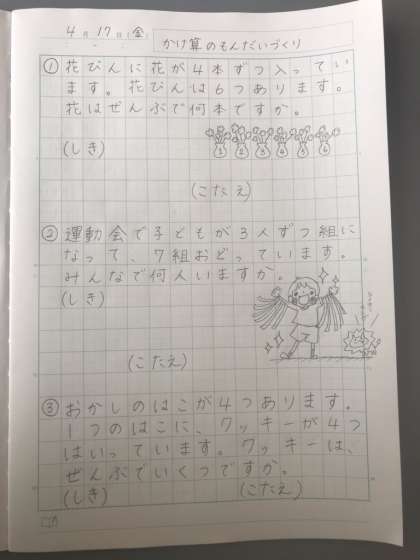 4月17日(金)
かけ算のもんだいづくり
① 花びんに花が4本ずつ入ってい
ます。花びんは6つあります。
花はぜんぶで何本ですか。
1 2 3 4 5 6
(しき)
(こたえ)
② 運動会で子どもが3人ずつ組に
なって、7組おどっています。
みんなで何人いますか。
(しき)
(こたえ)
③ おかしのはこが4つあります。
1つのはこに、クッキーが4つ
はいっています。クッキーは、
ぜんぶでいくつですか。
(しき)
(こたえ)